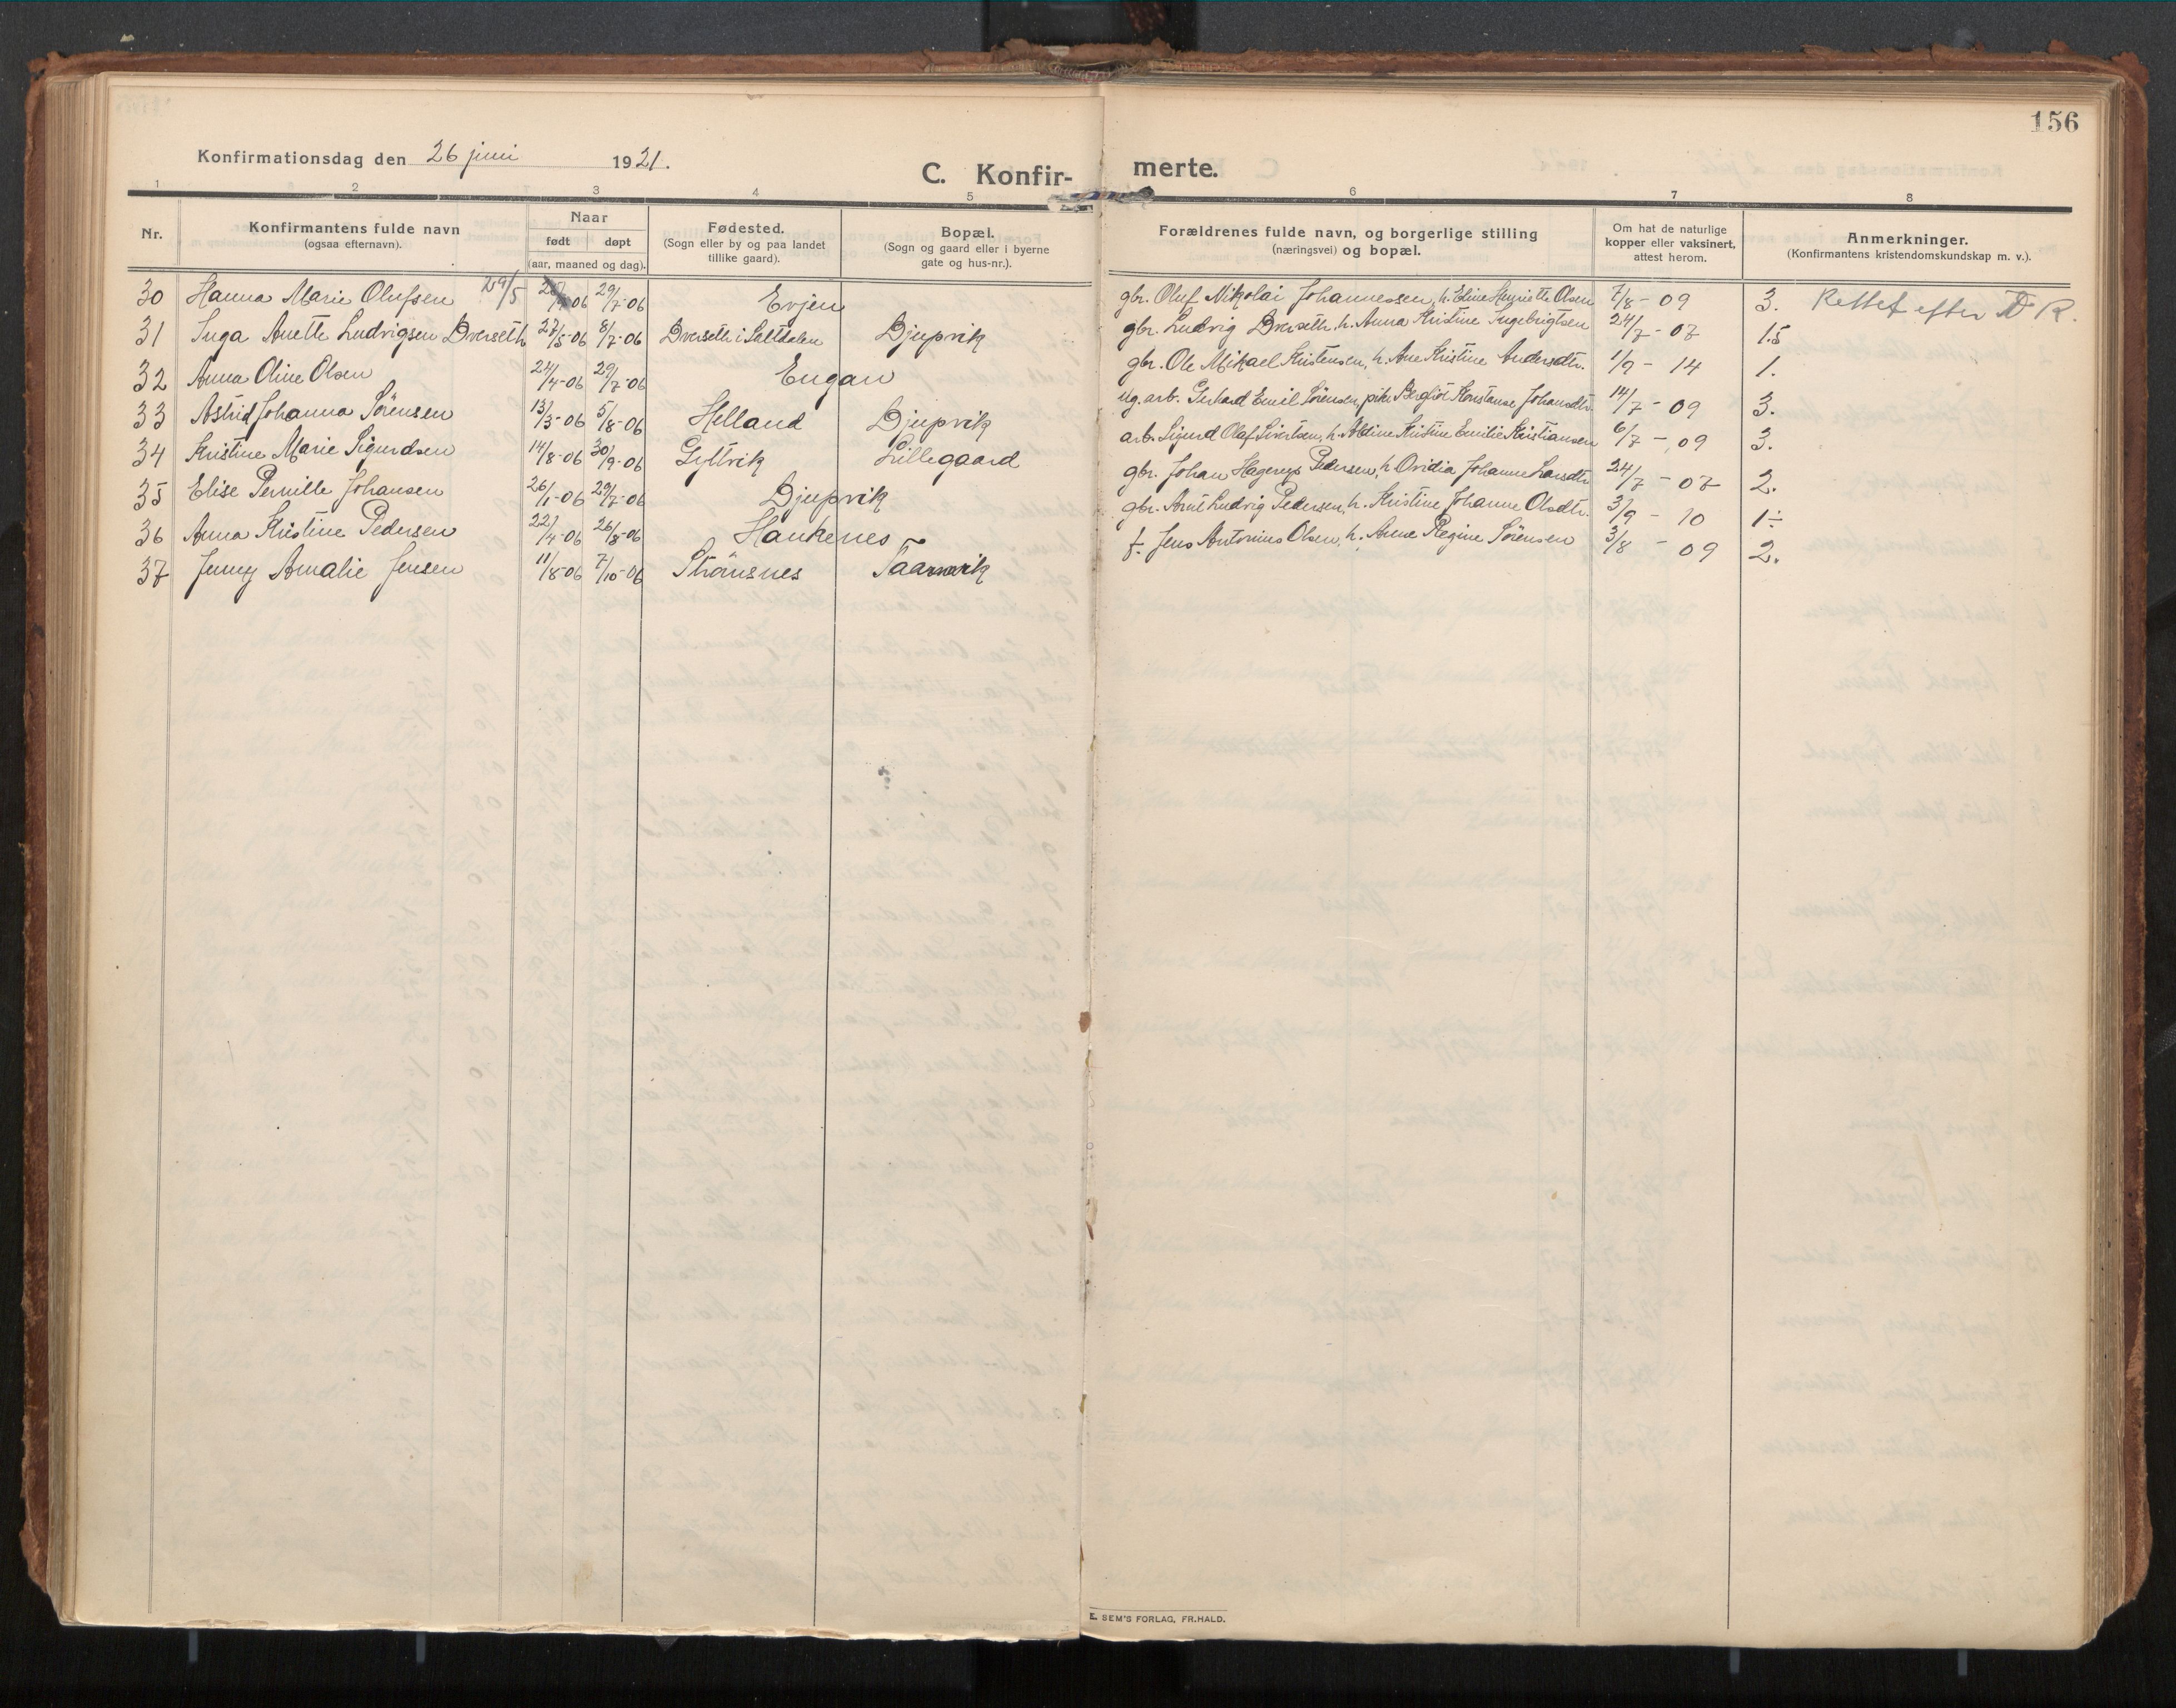 156
Konfirmationsdag den 26 juni 1921.
C. Konfir- merte.
1 2 3 4 5 6 7 8
Nr.
Konfirmantens fulde navn
(ogsaa efternavn).
Naar
født døpt
(aar, maaned og dag).
Fødested.
(Sogn eller by og paa landet
tillike gaard).
Bopæl.
(Sogn og gaard eller i byerne
gate og hus-nr.).
Forældrenes fulde navn, og borgerlige stilling
(næringsvei) og bopæl.
Om hat de naturlige
kopper eller vaksinert,
attest herom.
Anmerkninger.
(Konfirmantens kristendomskundskap m. v.).
30 Hanna Marie Olufsen 29/5 06 29/7-06 Evjen gbr. Oluf Nikolai Johannessen, h. Eline Henriette Olsen 7/8-09 3. Rettet efter D R.
31 Inga Anette Ludvigsen Dverseth 27/5-06 8/7-06 Dverseth i Saltdalen Djupvik gbr. Ludvig Dverseth, h. Anna Kristine Ingebrigtsen 24/7-07 1.5
32 Anna Oline Olsen 24/4-06 29/7-06 Engan gbr. Ole Mikael Kristensen, h. Ane Kristine Andersdtr. 1/9-14 1.
33 Astrid Johanna Sörensen 13/3-06 5/8-06 Helland Djupvik ug. arb. Gerhard Emil Sörensen, pike Bergliot Konstanse Johansdtr. 14/7-09 3.
34 Kristine Marie Sigurdsen 14/8-06 30/9-06 Gyltvik Lillegaard arb. Sigurd Olaf Sivertsen, h. Aldine Kristine Emilie Kristiansen 6/7-09 3.
35 Elise Pernille Johansen 26/1-06 29/7-06 Djupvik gbr. Johan Hagerup Pedersen, h. Ovidia Johanne Larsdtr 24/7-07 2.
36 Anna Kristine Pedersen 22/4-06 26/8-06 Hankenes gbr. Arnt Ludvig Pedersen, h. Kristine Johanne Olsdtr. 3/9-10 1÷
37 Jenny Amalie Jensen 11/8-06 7/10-06 Strönsnes Taarnvik f. Jens Antonius Olsen, h. Anne Regine Sörensen 3/8-09 2.
E. SEM'S FORLAG, FR.HALD.